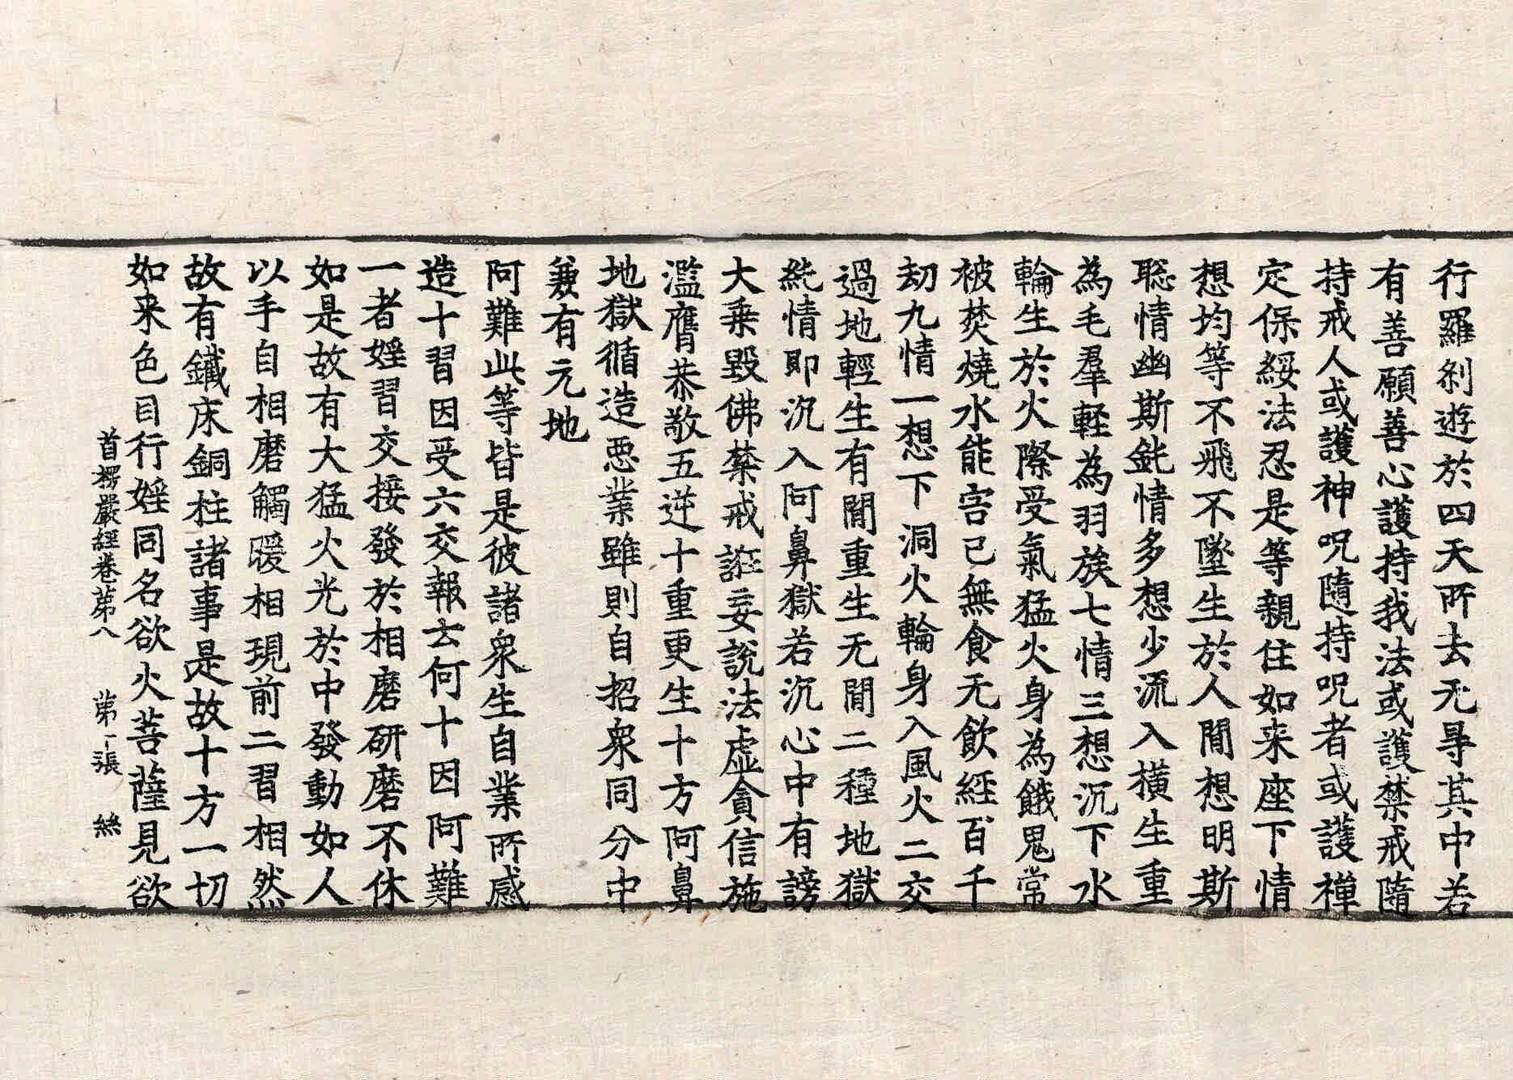 行羅刹遊於四天所去无㝵其中若
有善願善心護持我法或護禁戒隨
持戒人或護神呪隨持呪者或護禪
定保綏法忍是等親住如来座下情
想均等不飛不墜生於人間想明斯
聡情幽斯鈍情多想少流入橫生重
為毛羣軽為羽族七情三想沉下水
輪生於火際受氣猛火身為餓鬼常
被焚燒水能害己無食无飲経百千
刧九情一想下洞火輪身入風火二交
過地輕生有間重生无間二種地獄
純情即沉入阿鼻獄若沉心中有謗
大乗毀佛禁戒誑妄說法虛貪信施
濫膺恭敬五逆十重更生十方阿鼻
地獄循造悪業雖則自招衆同分中
兼有元地
阿難此等皆是彼諸衆生自業所感
造十習因受六交報云何十因阿難
一者婬習交接發於相磨研磨不休
如是故有大猛火光於中發動如人
以手自相磨觸暖相現前二習相然
故有鐵床銅柱諸事是故十方一切
如来色目行婬同名欲火菩薩見欲
首楞嚴經卷苐八 苐丁張 絲